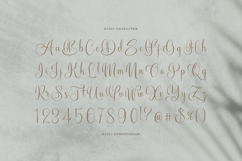 BASIC CHARACTER
Aa Bb Cc Dd Ee Ff Gg Hh
Ii Jj Kk Ll Mm Nn Oo Pp Qq
Rr Ss Tt Uu Vv Ww Xx Yy Zz
1234567890!?@#$%()